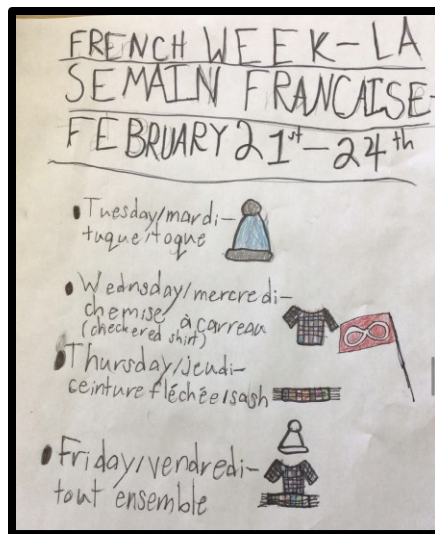 FRENCH WEEK-LA
SEMAIN FRANCAISE-
FEBRUARY 21st-24th
• Tuesday/mardi-
tuque/toque
• Wednsday/mercredi-
chemise à carreau
(checkered shirt)
• Thursday/jeudi-
ceinture fléchée/sash
• Friday/vendredi-
tout ensemble